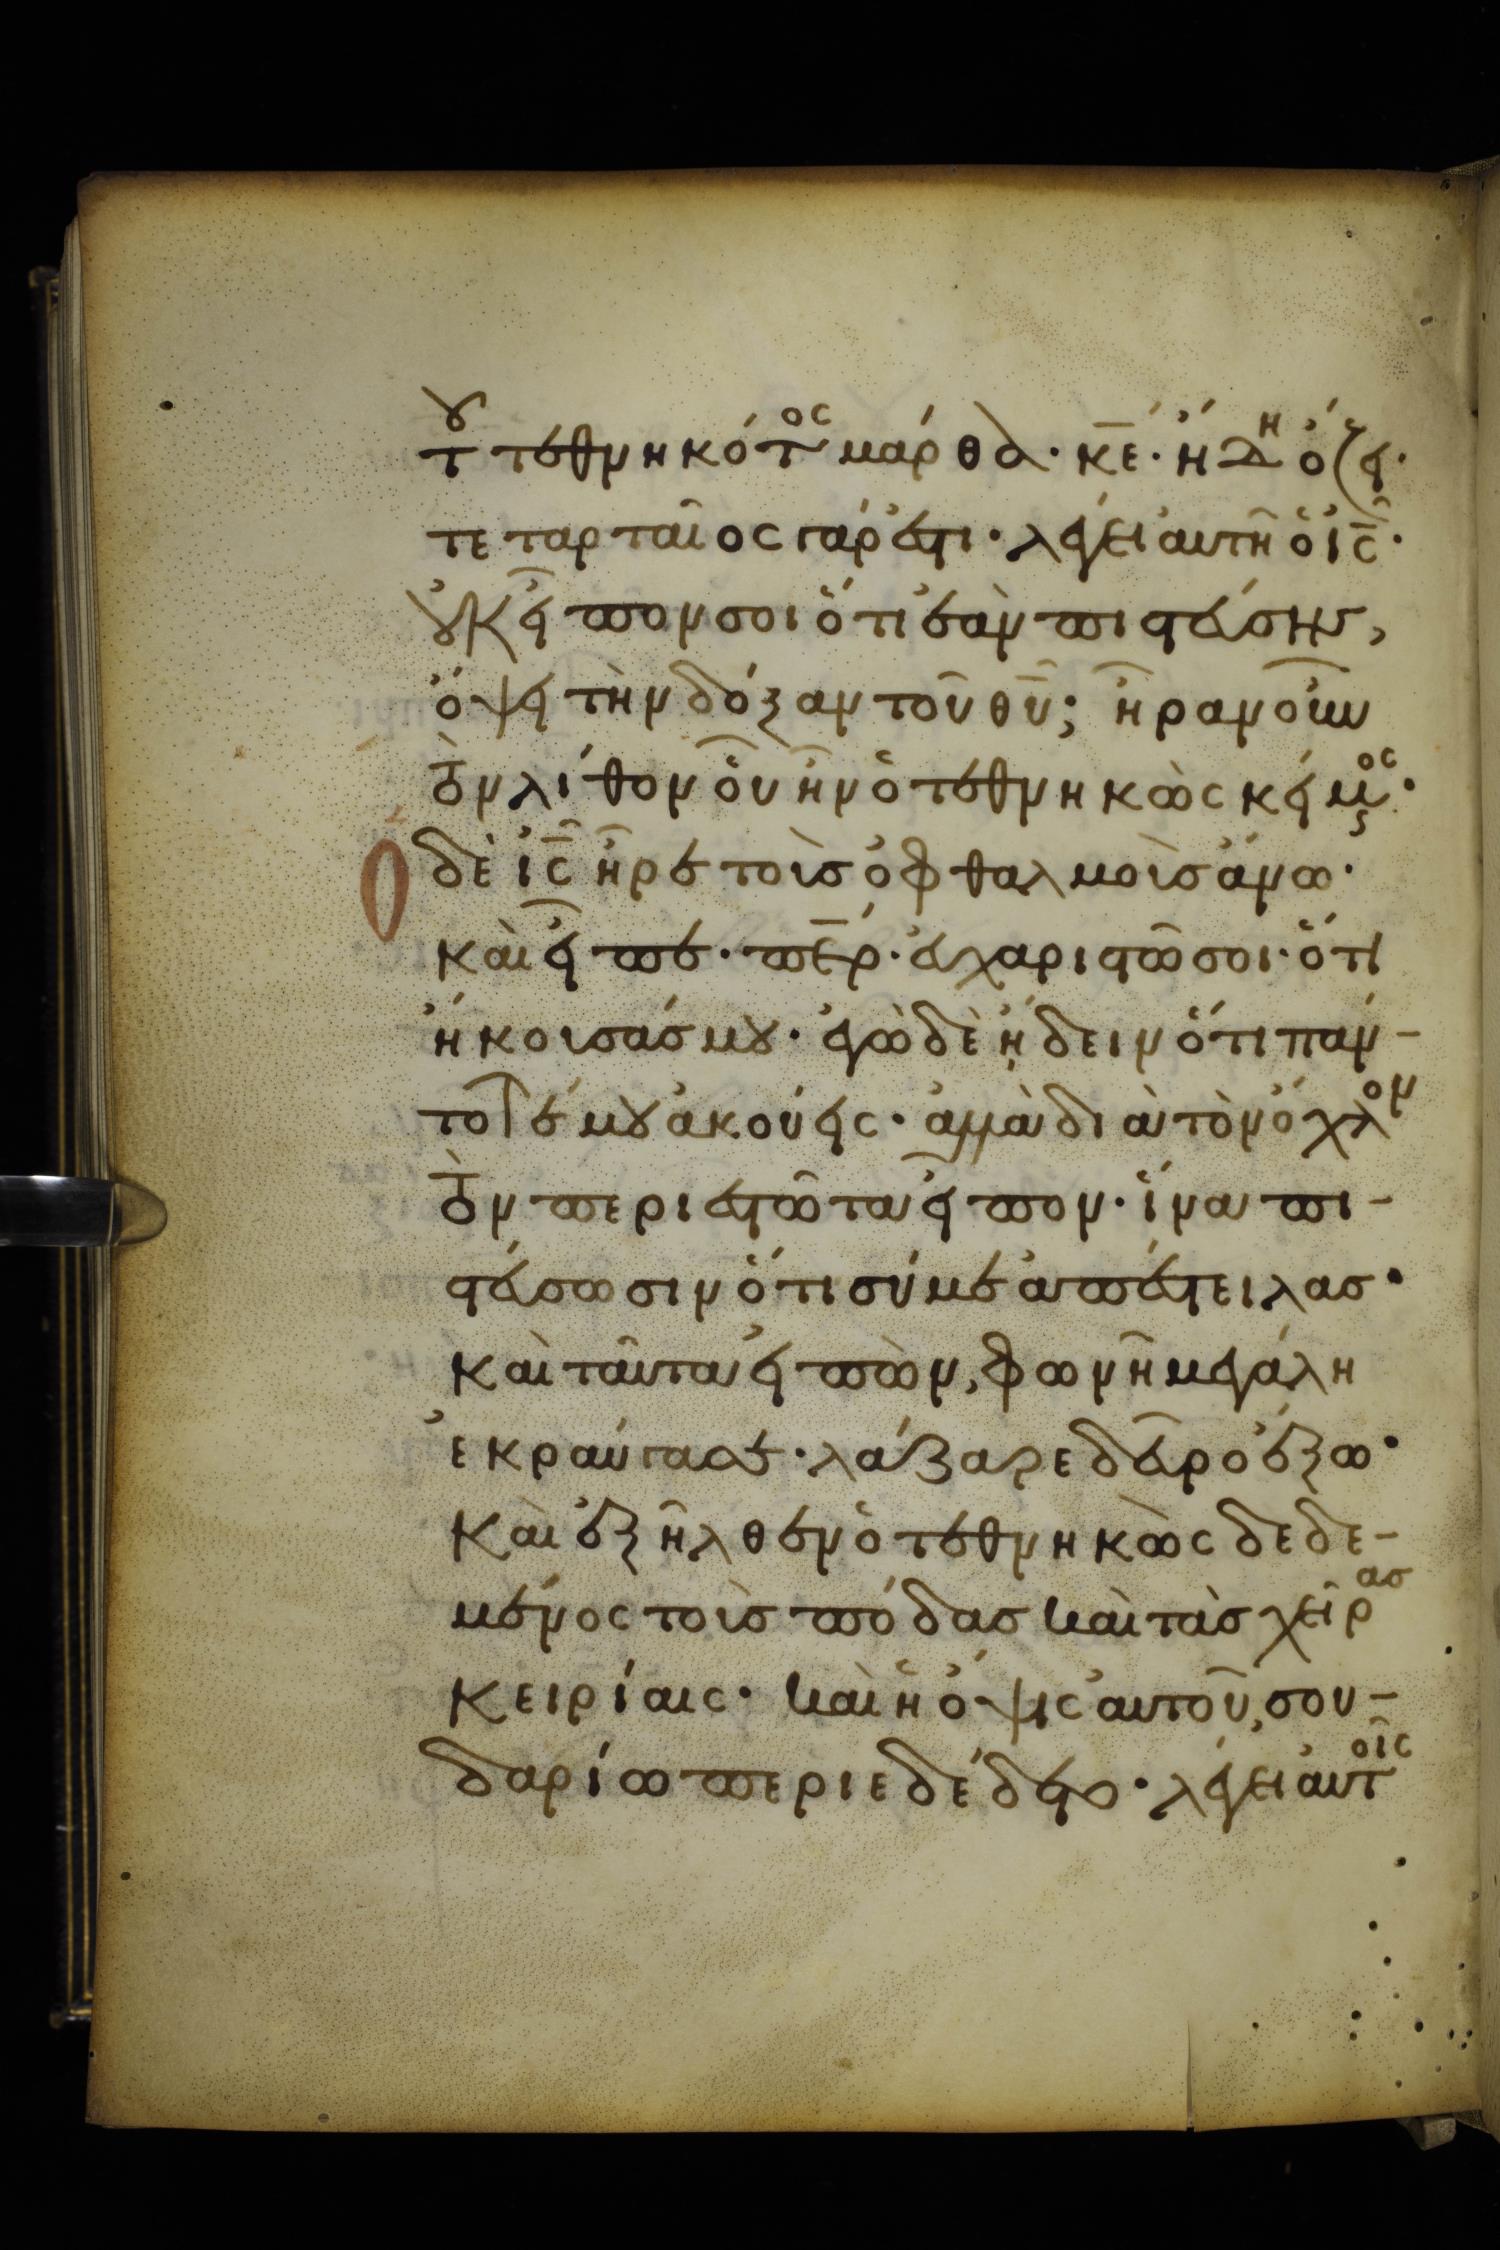 τοῦ τεθνηκότος μάρθα· κ̅ε̅· ἤδη ὄζει·
τεταρταῖος γάρ ἐστι· λέγει αὐτῆ ὁ ι̅ς̅·
οὐκ εἶπον σοι ὅτι ἐὰν πιστεύσης,
ὄψει τὴν δόξαν τοῦ θ̅υ̅; ἦραν οὖν
τὸν λίθον οὗ ἦν ὁ τεθνηκὼς κείμενος·
Ο δὲ ι̅ς̅ ἦρε τοὺς ὀφθαλμοὺς ἄνω·
καὶ εἶπε· π̅ε̅ρ̅· εὐχαριστῶ σοι· ὅτι
ἤκουσάς μου· ἐγὼ δὲ ἤδειν ὅτι παν-
τοτέ μου ἀκούεις· ἀλλὰ διὰ τὸν ὄχλον
τὸν περιεστῶτα εἶπον· ἵνα πι-
στεύσωσιν ὅτι σύ με ἀπέστειλας·
καὶ ταῦτα εἰπὼν, φωνῆ μεγάλη
ἐκραύγασε· λάζαρε δεῦρο ἔξω·
καὶ ἐξῆλθεν ὁ τεθνηκὼς δεδε-
μένος τοὺς πόδας καὶ τὰς χεῖρας
κειρίαις· καὶ ἡ ὄψις αὐτοῦ, σου-
δαρίω περιεδέδετο· λέγει αὐτοῖς